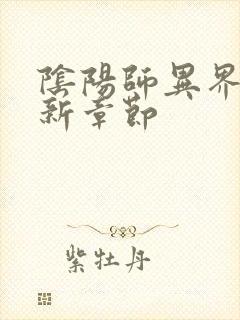 陰陽師異界
新章節
紫牡丹